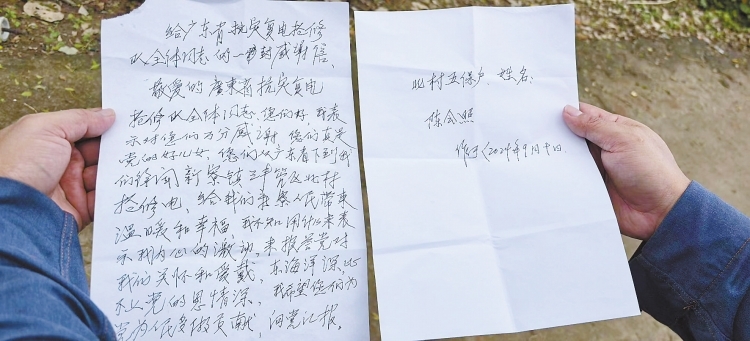 给广东省抗灾复电抢修
队全体同志的一封感谢信、
敬爱的广東省抗灾复电
抢修队全体同志、您们好、我表
示对您们万分感谢、您们真是
党的好儿女、您们从广东省下到我
们徐闻新寮镇三丰管区北村
抢修电、给我们新寮人民带来
温暖和幸福、我不知用什么来表
示我内心的激动、来报答党对
我们的关怀和爱戴、东海洋深、比
不上党的恩情深、我希望您们为
党为人民多做贡献、向党汇报。
北村五保户、姓名:
陈会照
作于2024年9月